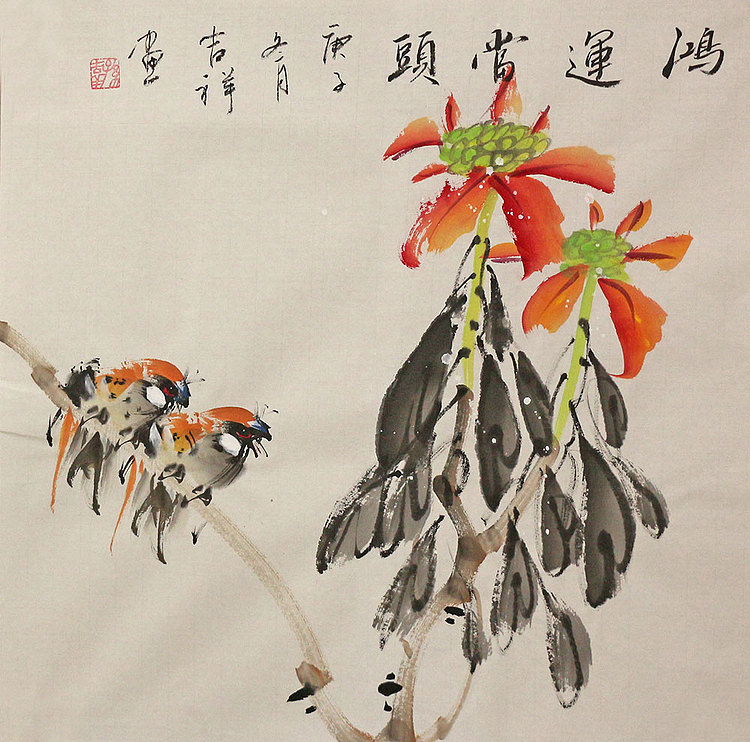 鴻運當頭
庚子
冬月
吉祥
畫